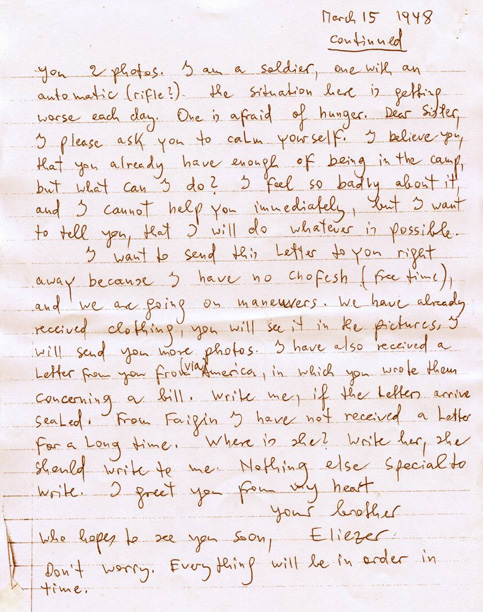 March 15 1948
continued
you 2 photos. I am a soldier, one with an
automatic (rifle?). the situation here is getting
worse each day. One is afraid of hunger. Dear Sister,
I please ask you to calm yourself. I believe you,
that you already have enough of being in the camp,
but what can I do? I feel so badly about it,
and I cannot help you immediately, but I want
to tell you, that I will do whatever is possible.
I want to send this Letter to you right
away because I have no chofesh (free time),
and we are going on maneuvers. We have already
received clothing, you will see it in the pictures. I
will send you more photos. I have also received a
Letter from you from (via) America, in which you wrote them
concerning a bill. Write me, if the Letters arrive
sealed. From Faigin I have not received a Letter
for a Long time. Where is she? Write her, she
should write to me. Nothing else special to
write. I greet you from my heart
your brother
who hopes to see you soon, Eliezer
Don't worry. Everything will be in order in
time.